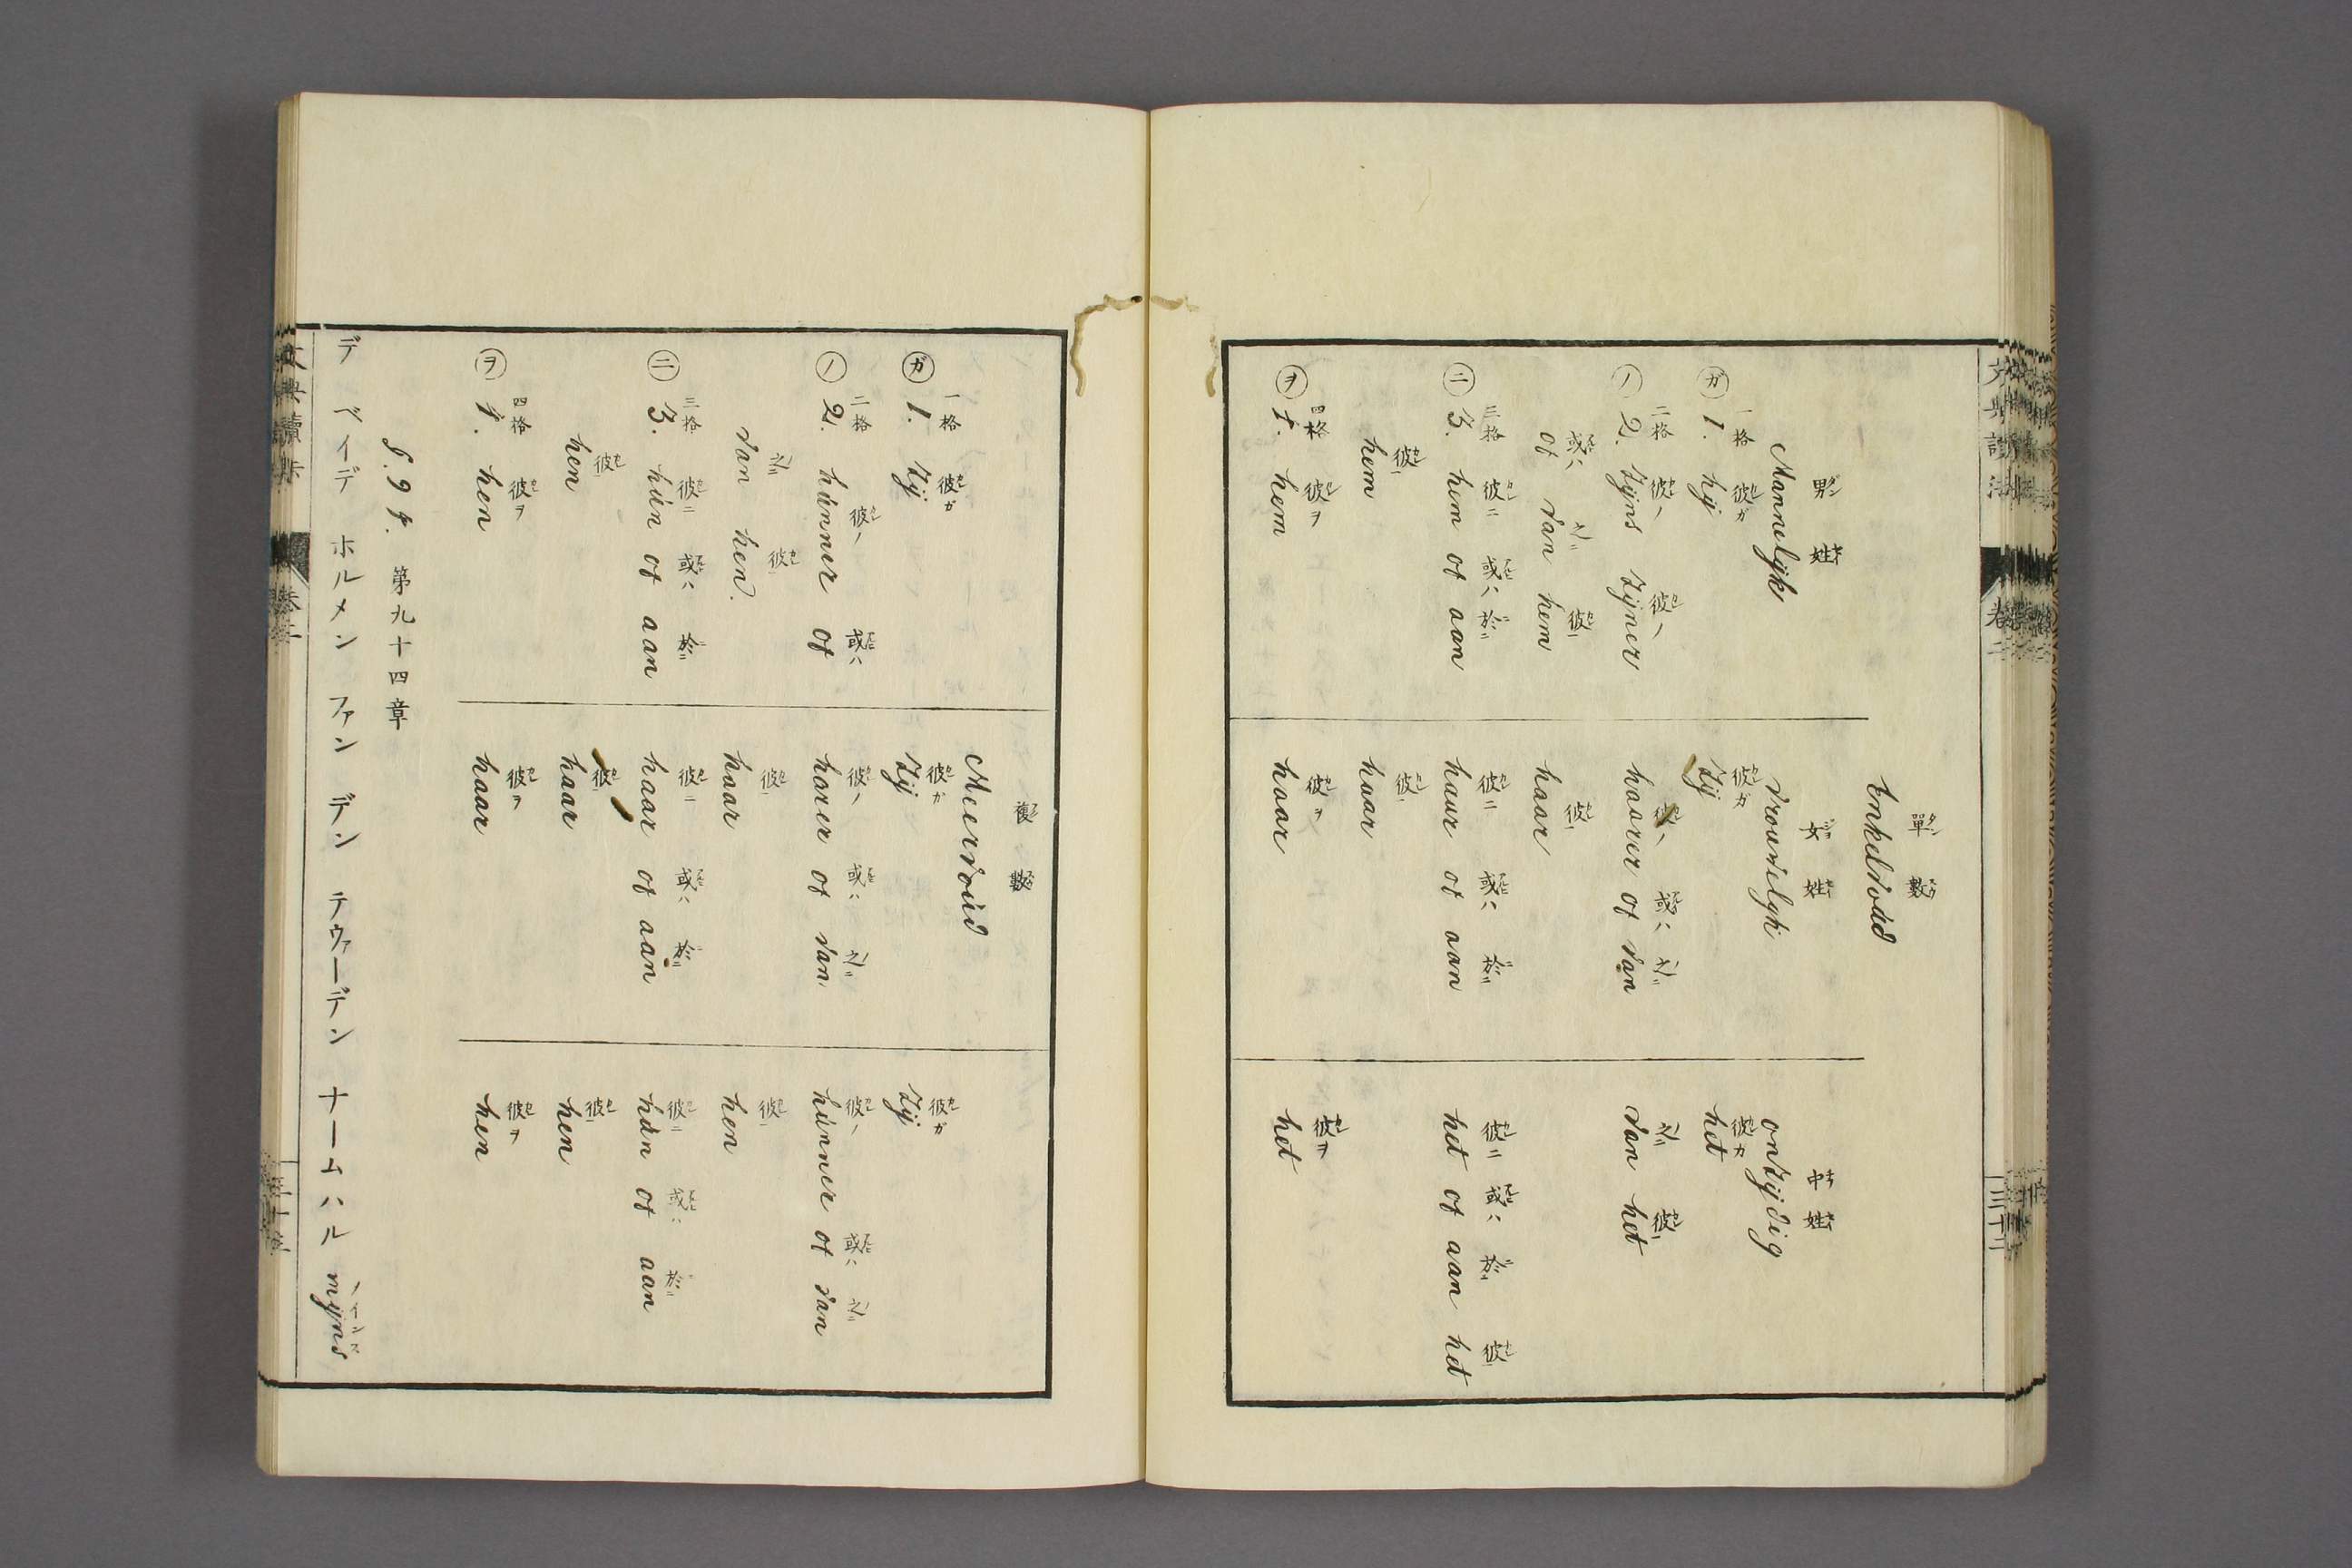 單數
Enkelvoúd
男姓 女姓 中姓
Mannelijk Vrouwelijk onzijdig
ガ 一格 彼ガ 彼ガ 彼カ
1. hij zij het
ノ 二格 彼ノ 彼ノ 彼ノ 或ハ 之ニ 之ニ 彼
2. zijns zijner haarer of van van het
或ハ 之ニ 彼 彼
of van hem haar
ニ 三格 彼ニ 或ハ 於ニ 彼ニ 或ハ 於ニ 彼ニ 或ハ 於ニ 彼
3. hem of aan haar of aan het of aan het
彼 彼
hem haar
ヲ 四格 彼ヲ 彼ヲ 彼ヲ
4. hem haar het
複數
Meervoúd
ガ 一格 彼ガ 彼ガ 彼ガ
1. zij zij zij
ノ 二格 彼ノ 或ハ 彼ノ 或ハ 之ニ 彼ノ 或ハ 之ニ
2. húnner of harer of van húnner of van
之ニ 彼 彼 彼
van hen. haar hen
ニ 三格 彼ニ 或ハ 於ニ 彼ニ 或ハ 於ニ 彼ニ 或ハ 於ニ
3. hún of aan haar of aan hún of aan
彼 彼 彼
hen haar hen
ヲ 四格 彼ヲ 彼ヲ 彼ヲ
4. hen haar hen
§. 94. 第九十四章
デ ベイデ ホルメン ファン デン テウァーデン ナームハル mijns
卷二